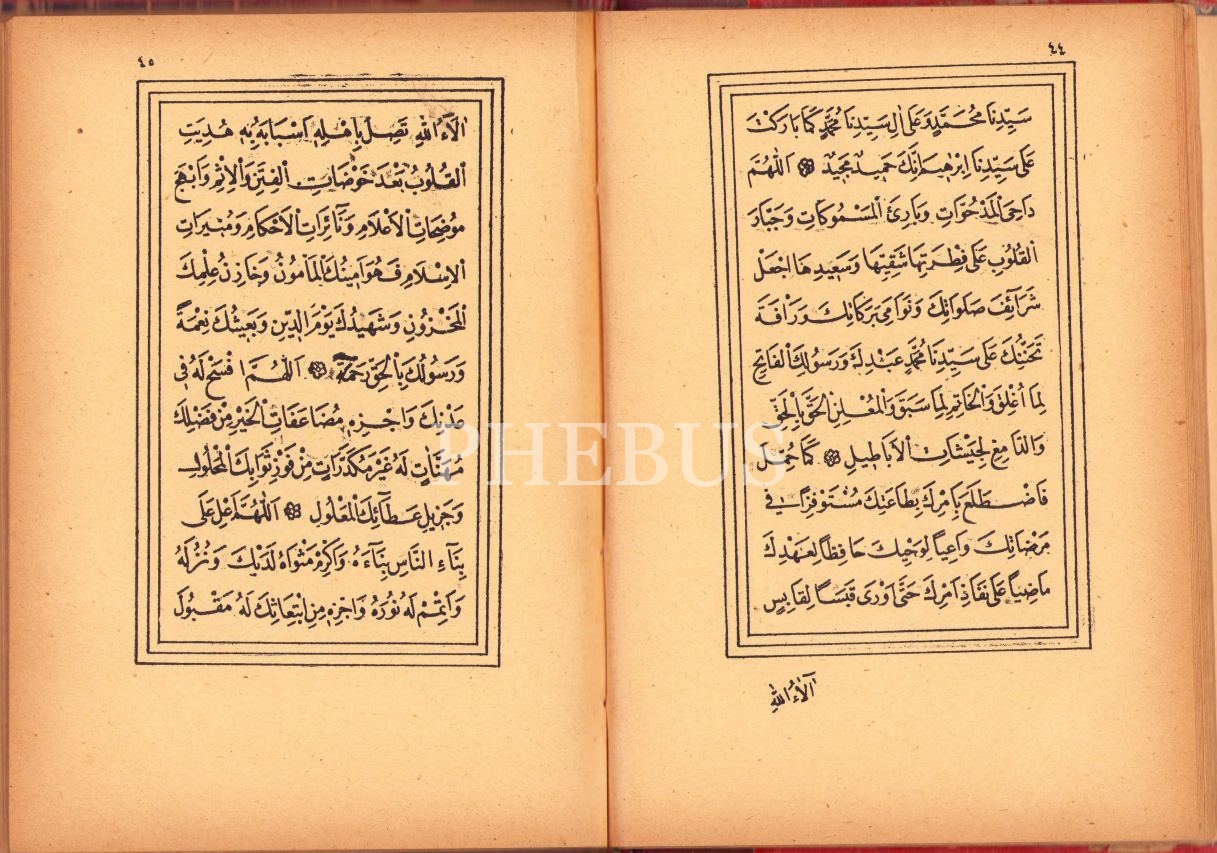 ٤٤
سَيِّدِنَا مُحَمَّدٍ وَعَلَى اٰلِ سَيِّدِنَا مُحَمَّدٍ كَمَا بَارَكْتَ
عَلَى سَيِّدِنَا اِبْرٰهِيمَ اِنَّكَ حَمِيدٌ مَجِيدٌ اَللّٰهُمَّ
دَاحِىَ الْمَدْحُوَّاتِ وَبَارِئَ الْمَسْمُوكَاتِ وَجَبَّارَ
الْقُلُوبِ عَلَى فِطْرَتِهَا شَقِيِّهَا وَسَعِيدِهَا اجْعَلْ
شَرَآئِفَ صَلَوَاتِكَ وَنَوَامِىَ بَرَكَاتِكَ وَرَاْفَةَ
تَحَنُّنِكَ عَلَى سَيِّدِنَا مُحَمَّدٍ عَبْدِكَ وَرَسُولِكَ الْفَاتِحِ
لِمَا اُغْلِقَ وَالْخَاتِمِ لِمَا سَبَقَ وَالْمُعْلِنِ الْحَقَّ بِالْحَقِّ
وَالدَّامِغِ لِجَيْشَاتِ الْاَبَاطِيلِ كَمَا حُمِّلَ
فَاضْطَلَعَ بِاَمْرِكَ بِطَاعَتِكَ مُسْتَوْفِزًا فِى
مَرْضَاتِكَ وَاعِيًا لِوَحْيِكَ حَافِظًا لِعَهْدِكَ
مَاضِيًا عَلَى نَفَاذِ اَمْرِكَ حَتَّى اَوْرَى قَبَسًا لِقَابِسٍ
اٰلَآءُ اللّٰهِ
٤٥
اٰلَآءُ اللّٰهِ تَصِلُ بِاَهْلِهِ اَسْبَابَهُ بِهِ هُدِيَتِ
الْقُلُوبُ بَعْدَ خَوْضَاتِ الْفِتَنِ وَالْاِثْمِ وَاَبْهَجَ
مُوضِحَاتِ الْاَعْلَامِ وَنَآئِرَاتِ الْاَحْكَامِ وَمُنِيرَاتِ
الْاِسْلَامِ فَهُوَ اَمِينُكَ الْمَاْمُونُ وَخَازِنُ عِلْمِكَ
الْمَخْزُونِ وَشَهِيدُكَ يَوْمَ الدِّينِ وَبَعِيثُكَ نِعْمَةً
وَرَسُولُكَ بِالْحَقِّ رَحْمَةً اَللّٰهُمَّ افْسَحْ لَهُ فِى
عَدْنِكَ وَاجْزِهِ مُضَاعَفَاتِ الْخَيْرِ مِنْ فَضْلِكَ
مُهَنَّاٰتٍ لَهُ غَيْرَ مُكَدَّرَاتٍ مِنْ فَوْزِ ثَوَابِكَ الْمَحْلُولِ
وَجَزِيلِ عَطَآئِكَ الْمَعْلُولِ اَللّٰهُمَّ اَعْلِ عَلَى
بِنَآءِ النَّاسِ بِنَآءَهُ وَاَكْرِمْ مَثْوَاهُ لَدَيْكَ وَنُزُلَهُ
وَاَتْمِمْ لَهُ نُورَهُ وَاجْزِهِ مِنِ ابْتِعَاثِكَ لَهُ مَقْبُولَ
PHEBUS